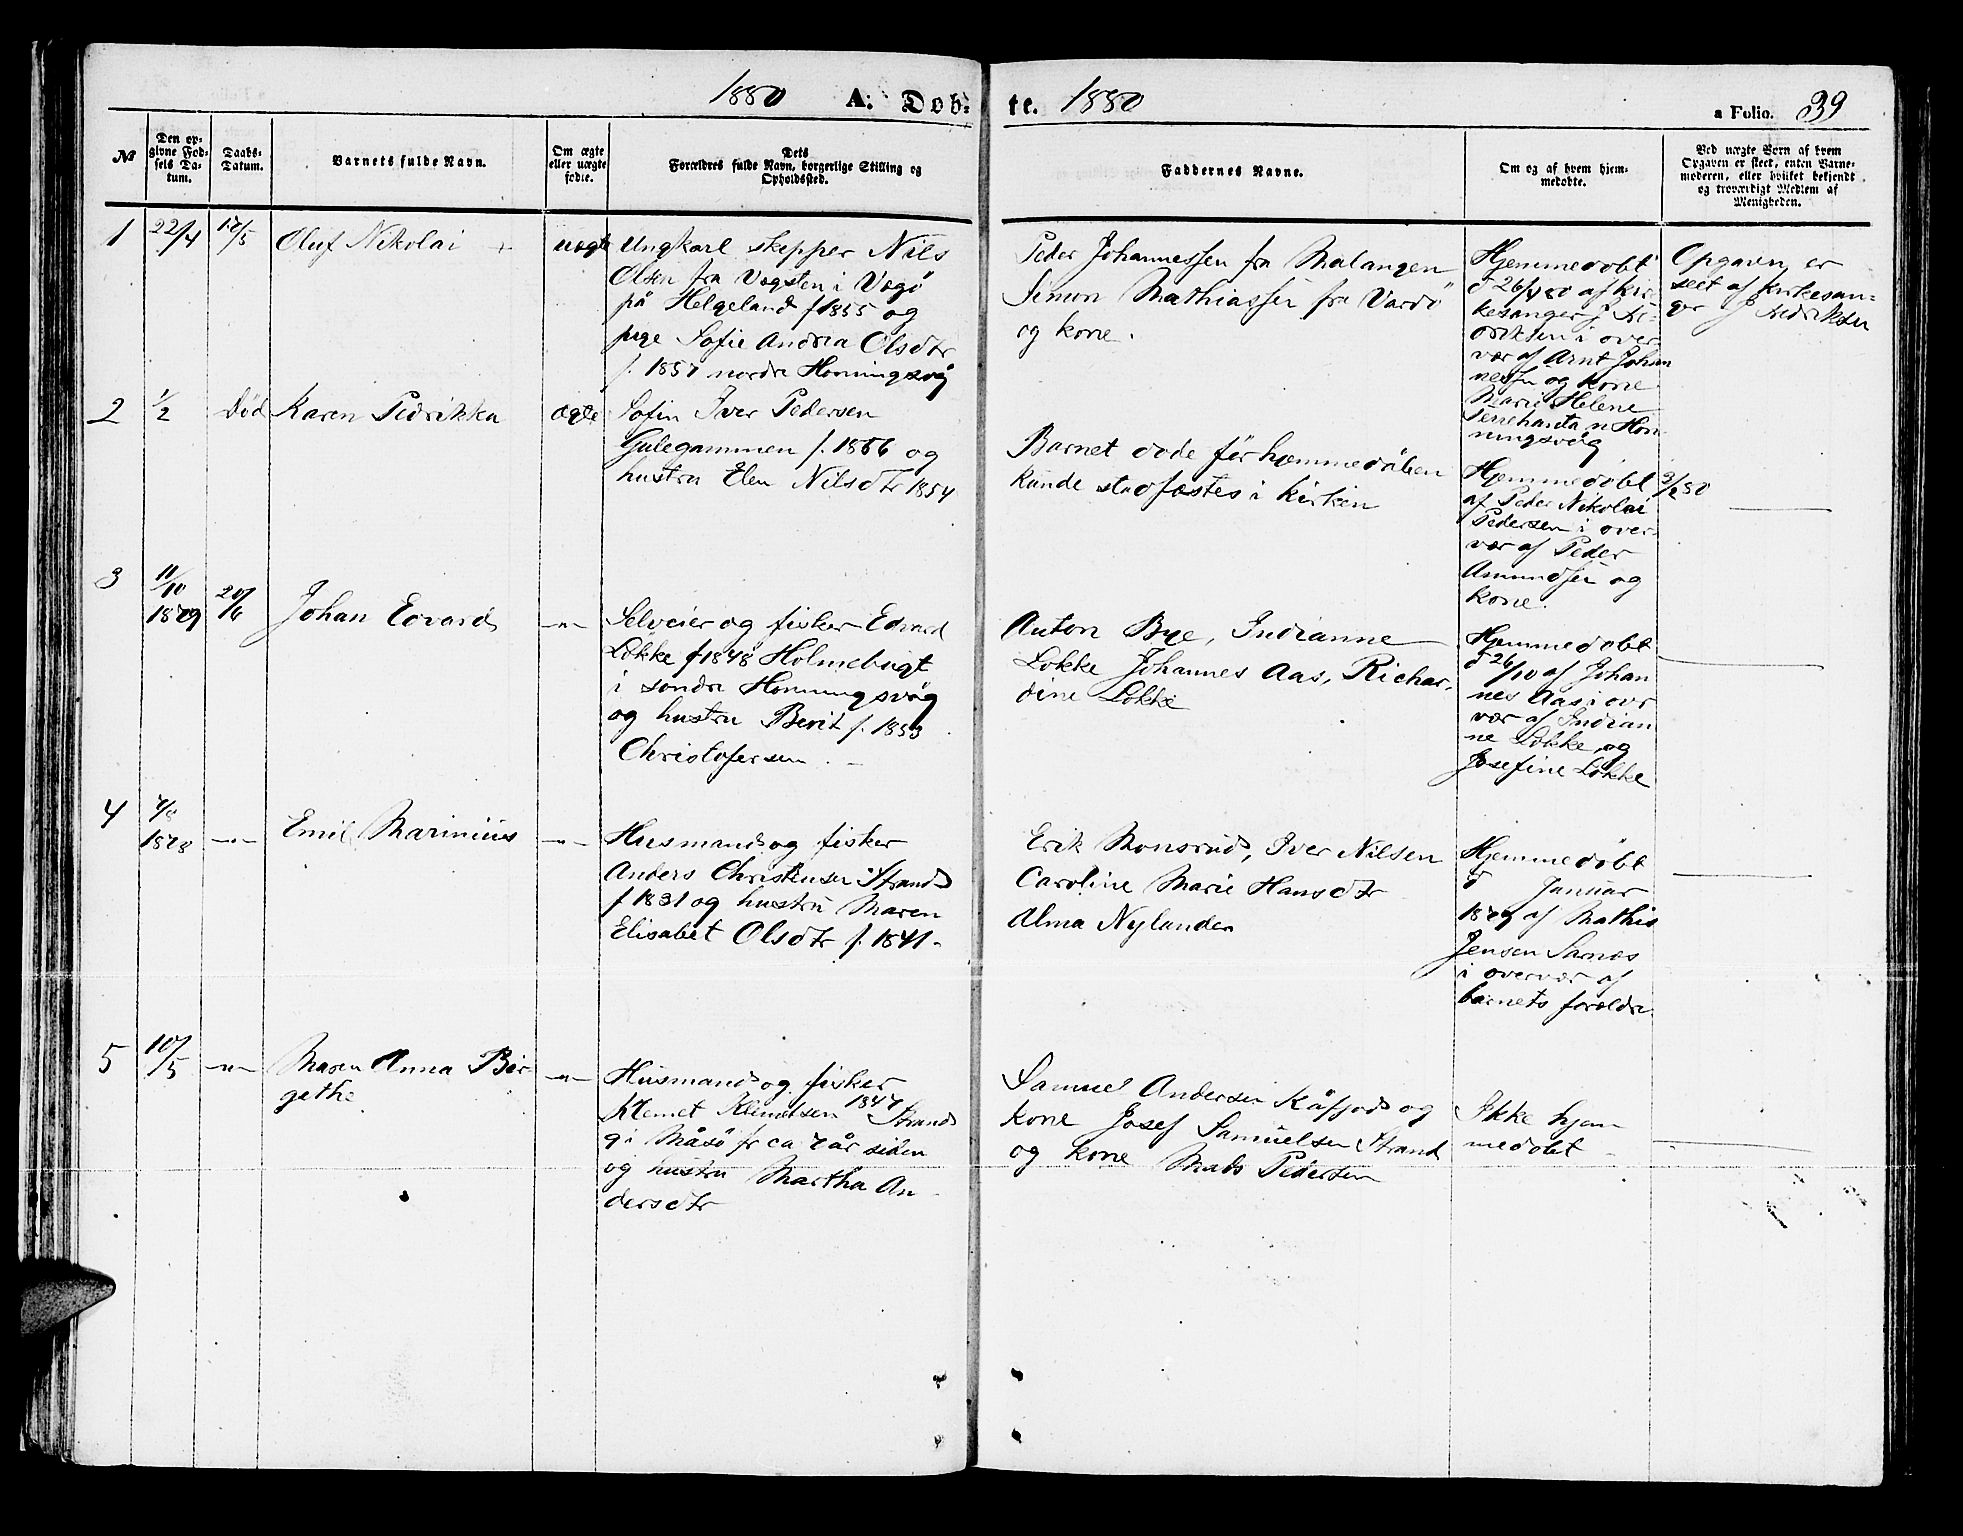 1880 A: Døb-
te. 1880
a Folio. 39
№
Den op-
givne Fød-
sels Da-
tum.
Daabs-
Datum.
Barnets fulde Navn.
Om ægte
eller uægte
fødte.
Dets
Forældres fulde Navn, borgerlige Stilling og
Opholdssted.
Faddernes Navne.
Om og af hvem hjem-
medøbte.
Ved uægte Børn af hvem
Opgaven er skeet, enten Barne-
moderen, eller hvilket bekjendt
og troværdigt Medlem af
Menigheden.
1
22/4
17/5
Oluf Nikolai
uægte
Ungkarl skepper Nils
Olsen fra Vægsten i Vegö
på Helgeland f 1855 og
pige Sofie Andrea Olsdtr
f. 1857 nordre Honningsvög
Peder Johannessen fra Malangen
Simon Mathiassen fra Vardö
og kone.
Hjemmedöbt
d 26/4 80 af kir-
kesanger J. Fre-
driksen i over
vær af Arnt Johan
nessen og kone
Marie Helene
n Hon-
ningsvög
Opgaven er
skeet af kirkesan-
ger J Fredriksen
2
1/2
Död
Karen Pedrikka
ægte
Sofin Iver Pedersen
Gulegammen f. 1856 og
hustru Elen Nilsdtr 1854
Barnet döde för hjemmedåben
kunde stadfæstes i kirken
Hjemmedöbt 3/2 80
af Peder Nikolai
Pedersen i over-
vær af Peder
Amundsen og
kone.
3
11/10
1879
20/6
Johan Edvard
-"-
Selveier og fisker Edvard
Lökke f 1848 Holmebugt
i söndre Honningsvög
og hustru Berit f. 1853
Christofersen.
Anton Bye, Indianne
Lökke Johannes Aas, Richar-
dine Lökke
Hjemmedöbt
d 26/10 af Johan
nes Aas i over
vær af Indian
ne Lökke og
Josefine Lökke
4
1878
-"-
Emil Marinius
-"-
Husmand og fisker
Anders Christensen Strand
f 1831 og hustru Maren
Elisabet Olsdtr f. 1841.
Erik Monsrud, Iver Nilsen
Caroline Marie Hansdtr
Alma Nylander
Hjemmedöbt
d Januar
1879 af Mathis
Jensen Sarnes
i overvær af
barnets forældre
5
10/5
-"-
Maren Anna Bir-
gethe
-"-
Husmand og fisker
Klemet Klemetsen 1847 Strand
gi Måsö for ca 7 år siden
og hustru Martha An-
dersdtr
Samuel Andersen Kåfjord og
kone Josef Samuelsen Strand
og kone Mads Pedersen
Ikke hjem
medöbt